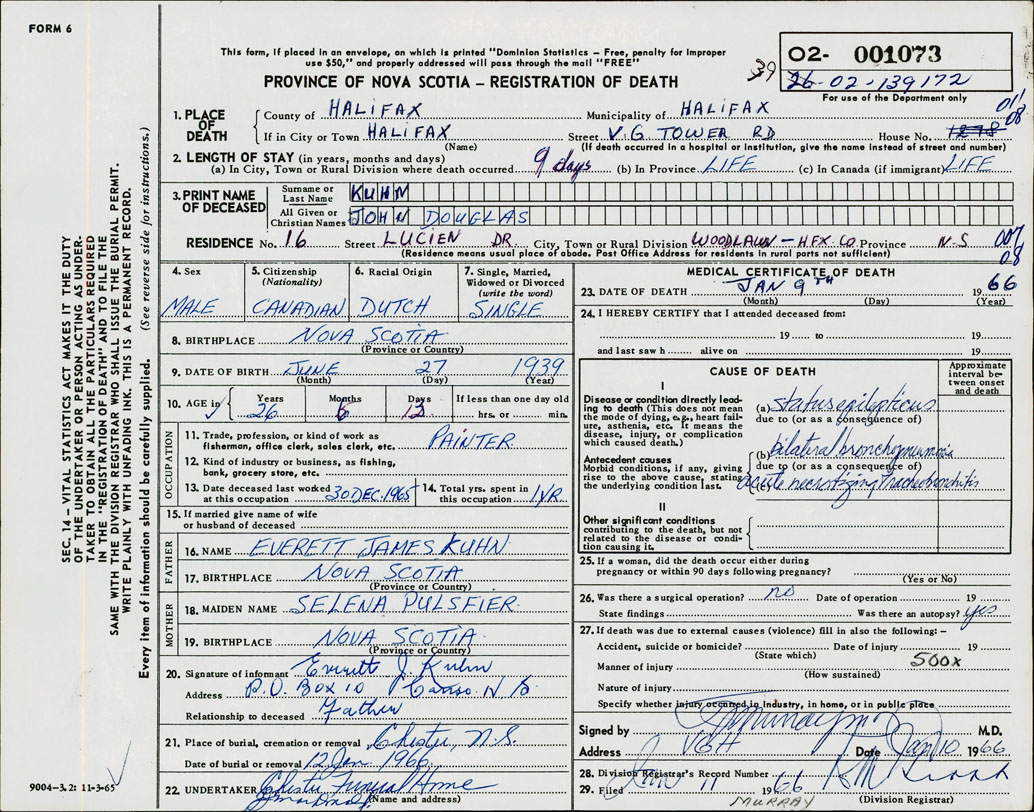 FORM 6
This form, if placed in an envelope, on which is printed "Dominion Statistics – Free, penalty for improper
use $50," and properly addressed will pass through the mail "FREE"
PROVINCE OF NOVA SCOTIA – REGISTRATION OF DEATH
39
02- 001073
26-02-139172
For use of the Department only
1. PLACE OF DEATH
County of HALIFAX Municipality of HALIFAX 011 08
If in City or Town HALIFAX Street V.G TOWER RD House No. 1278
(Name) (If death occurred in a hospital or institution, give the name instead of street and number)
2. LENGTH OF STAY (in years, months and days)
(a) In City, Town or Rural Division where death occurred 9 days (b) In Province LIFE (c) In Canada (if immigrant) LIFE
3. PRINT NAME OF DECEASED
Surname or Last Name KUHN
All Given or Christian Names JOHN DOUGLAS
RESIDENCE No. 16 Street LUCIEN DR. City, Town or Rural Division WOODLAWN – HFX CO. Province N.S 007 08
(Residence means usual place of abode. Post Office Address for residents in rural parts not sufficient)
4. Sex MALE
5. Citizenship (Nationality) CANADIAN
6. Racial Origin DUTCH
7. Single, Married, Widowed or Divorced (write the word) SINGLE
8. BIRTHPLACE NOVA SCOTIA
(Province or Country)
9. DATE OF BIRTH JUNE 27 1939
(Month) (Day) (Year)
10. AGE in Years 26 Months 6 Days 13 If less than one day old hrs. or min.
OCCUPATION
11. Trade, profession, or kind of work as fisherman, office clerk, sales clerk, etc. PAINTER
12. Kind of industry or business, as fishing, bank, grocery store, etc.
13. Date deceased last worked at this occupation 30 DEC. 1965
14. Total yrs. spent in this occupation 1 YR.
15. If married give name of wife or husband of deceased
FATHER
16. NAME EVERETT JAMES KUHN
17. BIRTHPLACE NOVA SCOTIA
(Province or Country)
MOTHER
18. MAIDEN NAME SELENA PULSFIER
19. BIRTHPLACE NOVA SCOTIA
(Province or Country)
20. Signature of informant Everett J. Kuhn
Address P.O. Box 10 Canso N S
Relationship to deceased Father
21. Place of burial, cremation or removal Chester, N.S.
Date of burial or removal 12 Jan 1966
22. UNDERTAKER Chester Funeral Home
(Name and address)
MEDICAL CERTIFICATE OF DEATH
23. DATE OF DEATH JAN 9TH 1966
(Month) (Day) (Year)
24. I HEREBY CERTIFY that I attended deceased from:
19 to 19
and last saw h alive on 19
CAUSE OF DEATH
Approximate interval between onset and death
I
Disease or condition directly leading to death (This does not mean the mode of dying, e.g., heart failure, asthenia, etc. It means the disease, injury, or complication which caused death.)
(a) status epilepticus
due to (or as a consequence of)
Antecedent causes
Morbid conditions, if any, giving rise to the above cause, stating the underlying condition last.
(b) bilateral bronchopneumonia
due to (or as a consequence of)
(c) acute necrotizing tracheobronchitis
II
Other significant conditions contributing to the death, but not related to the disease or condition causing it.
25. If a woman, did the death occur either during pregnancy or within 90 days following pregnancy?
(Yes or No)
26. Was there a surgical operation? no Date of operation 19
State findings Was there an autopsy? yes
27. If death was due to external causes (violence) fill in also the following: –
Accident, suicide or homicide? Date of injury 19
(State which)
500X
Manner of injury
(How sustained)
Nature of injury
Specify whether injury occurred in industry, in home, or in public place
Signed by M.D.
Address VGH Date Jan 10 1966
28. Division Registrar's Record Number
29. Filed Jan 11 1966
MURRAY (Division Registrar)
SEC. 14 – VITAL STATISTICS ACT MAKES IT THE DUTY
OF THE UNDERTAKER OR PERSON ACTING AS UNDER-
TAKER TO OBTAIN ALL THE PARTICULARS REQUIRED
IN THE "REGISTRATION OF DEATH" AND TO FILE THE
SAME WITH THE DIVISION REGISTRAR WHO SHALL ISSUE THE BURIAL PERMIT.
WRITE PLAINLY WITH UNFADING INK. THIS IS A PERMANENT RECORD.
Every item of information should be carefully supplied. (See reverse side for instructions.)
9004-3.2: 11-3-65